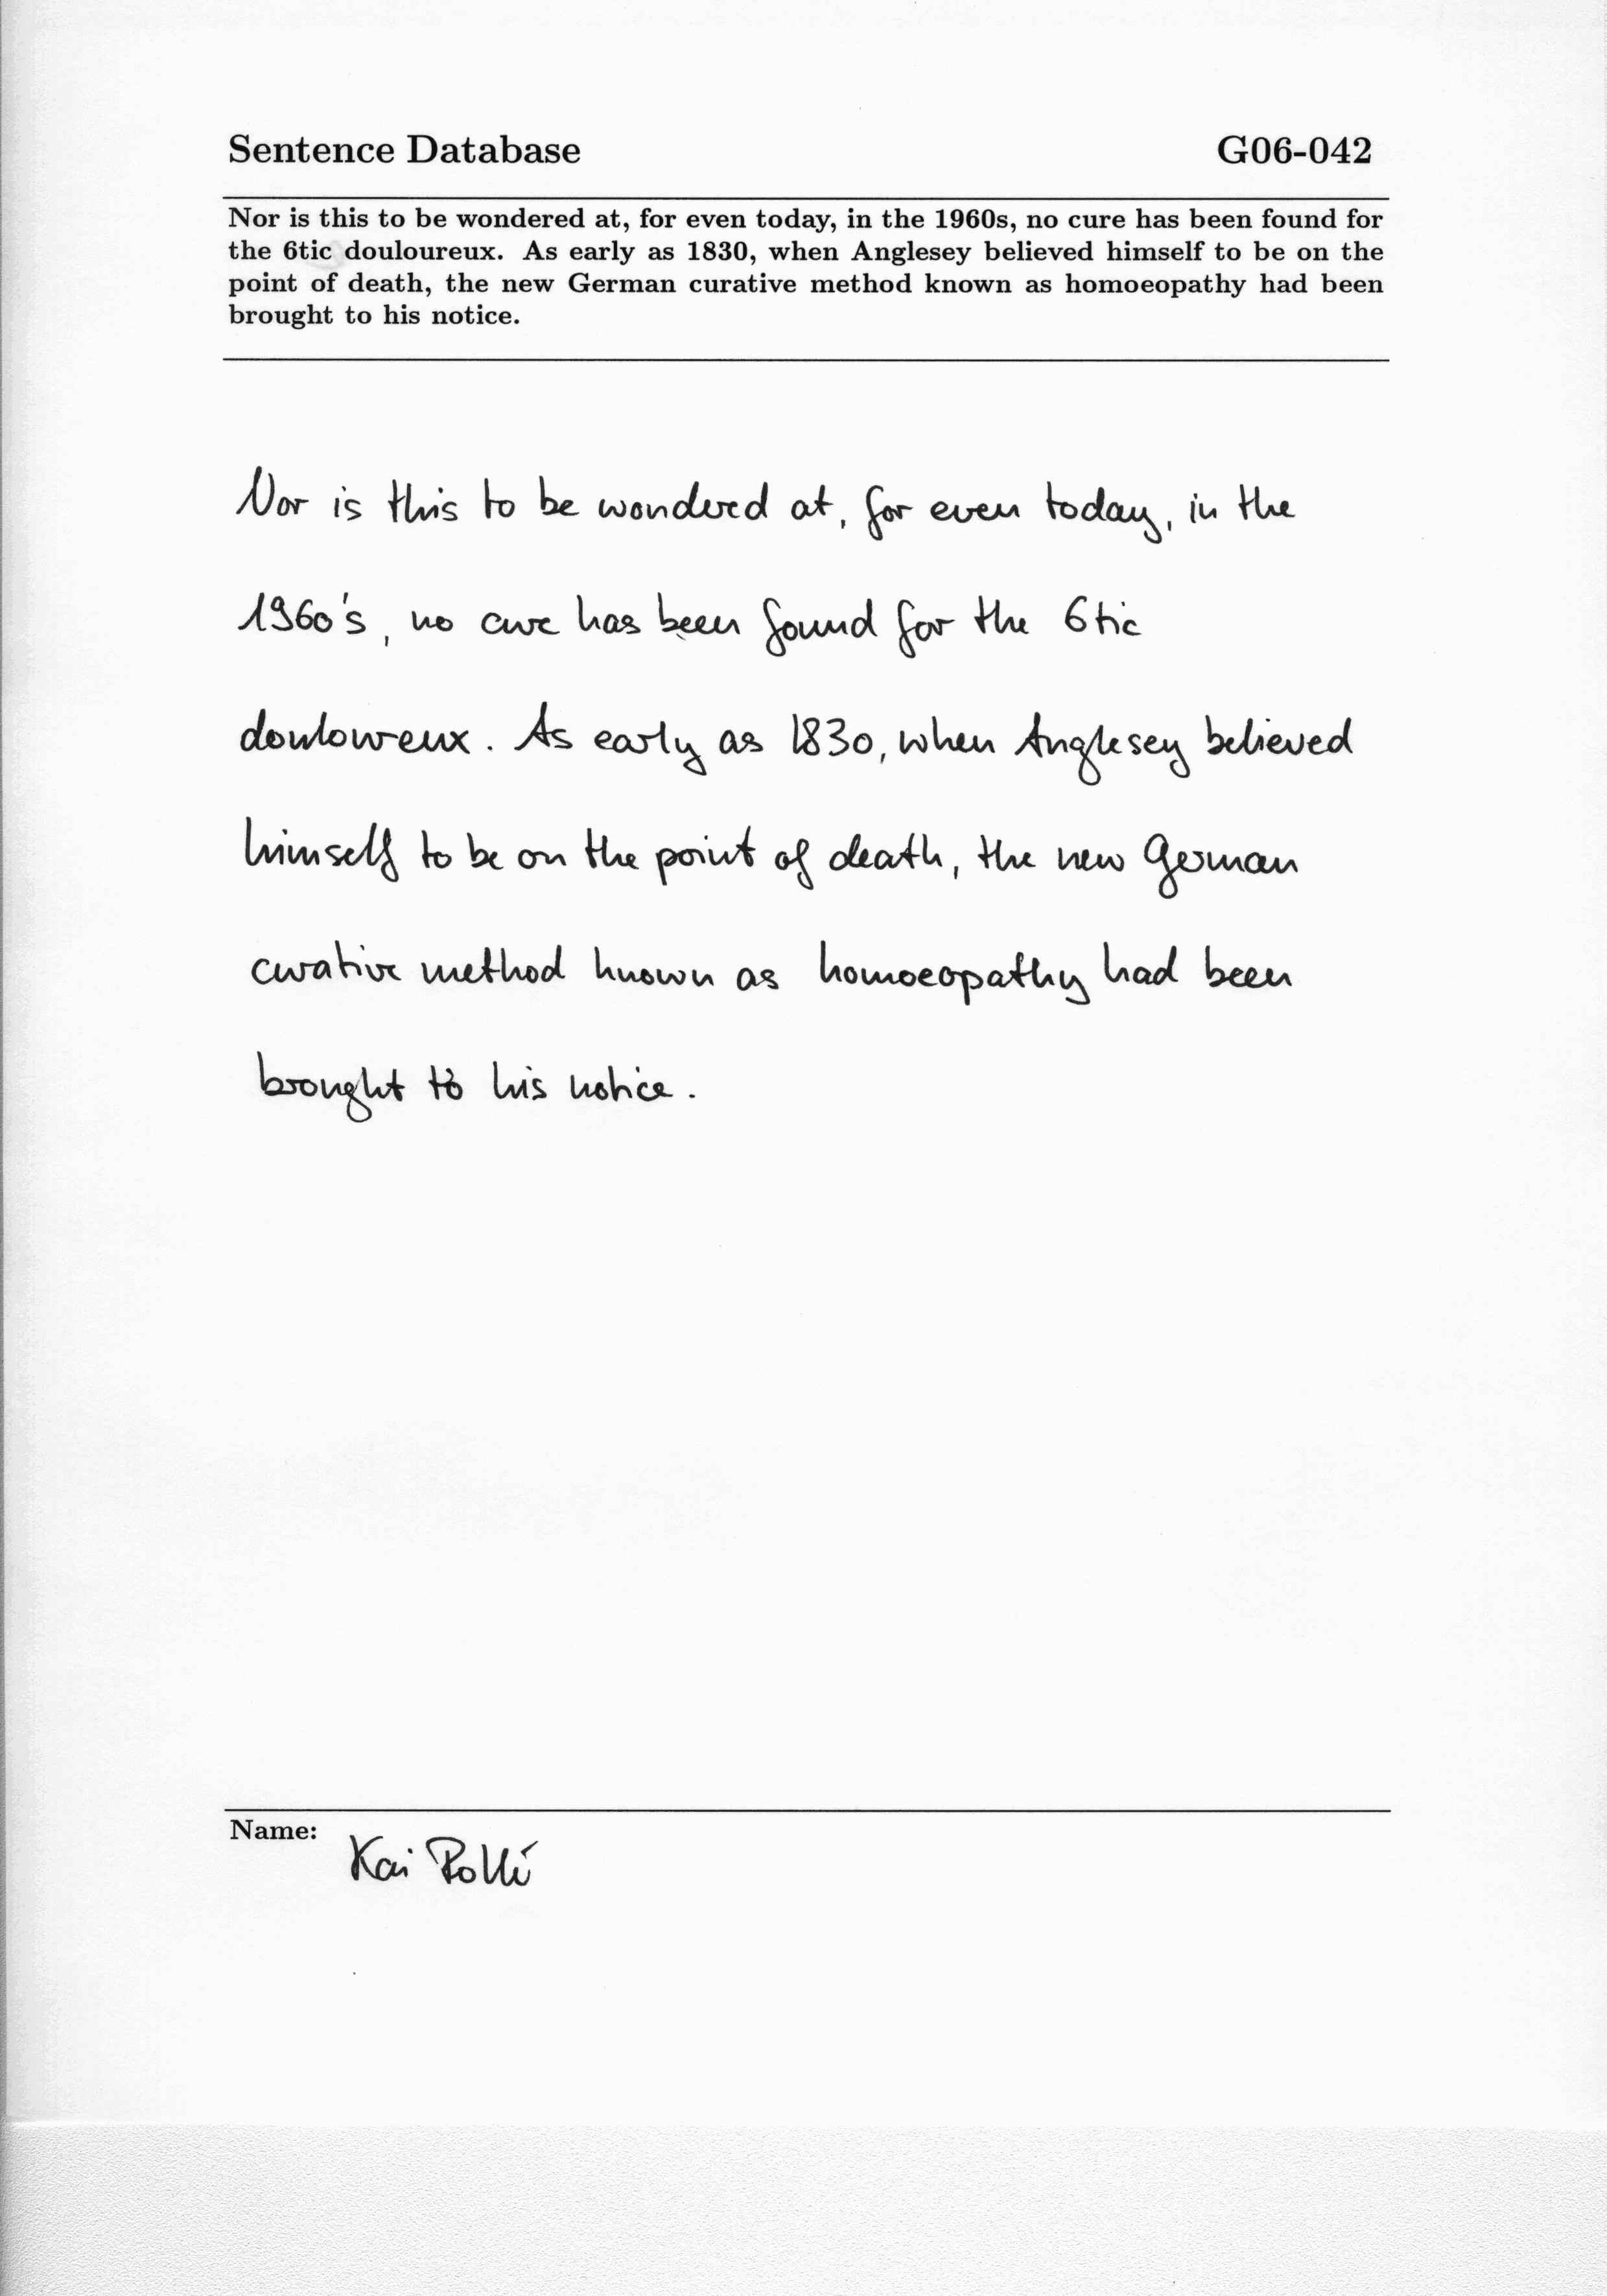 Sentence Database G06-042
Nor is this to be wondered at, for even today, in the 1960s, no cure has been found for
the 6tic douloureux. As early as 1830, when Anglesey believed himself to be on the
point of death, the new German curative method known as homoeopathy had been
brought to his notice.
Nor is this to be wondered at, for even today, in the
1960's, no cure has been found for the 6tic
douloureux. As early as 1830, when Anglesey believed
himself to be on the point of death, the new German
curative method known as homoeopathy had been
brought to his notice.
Name:
Kai